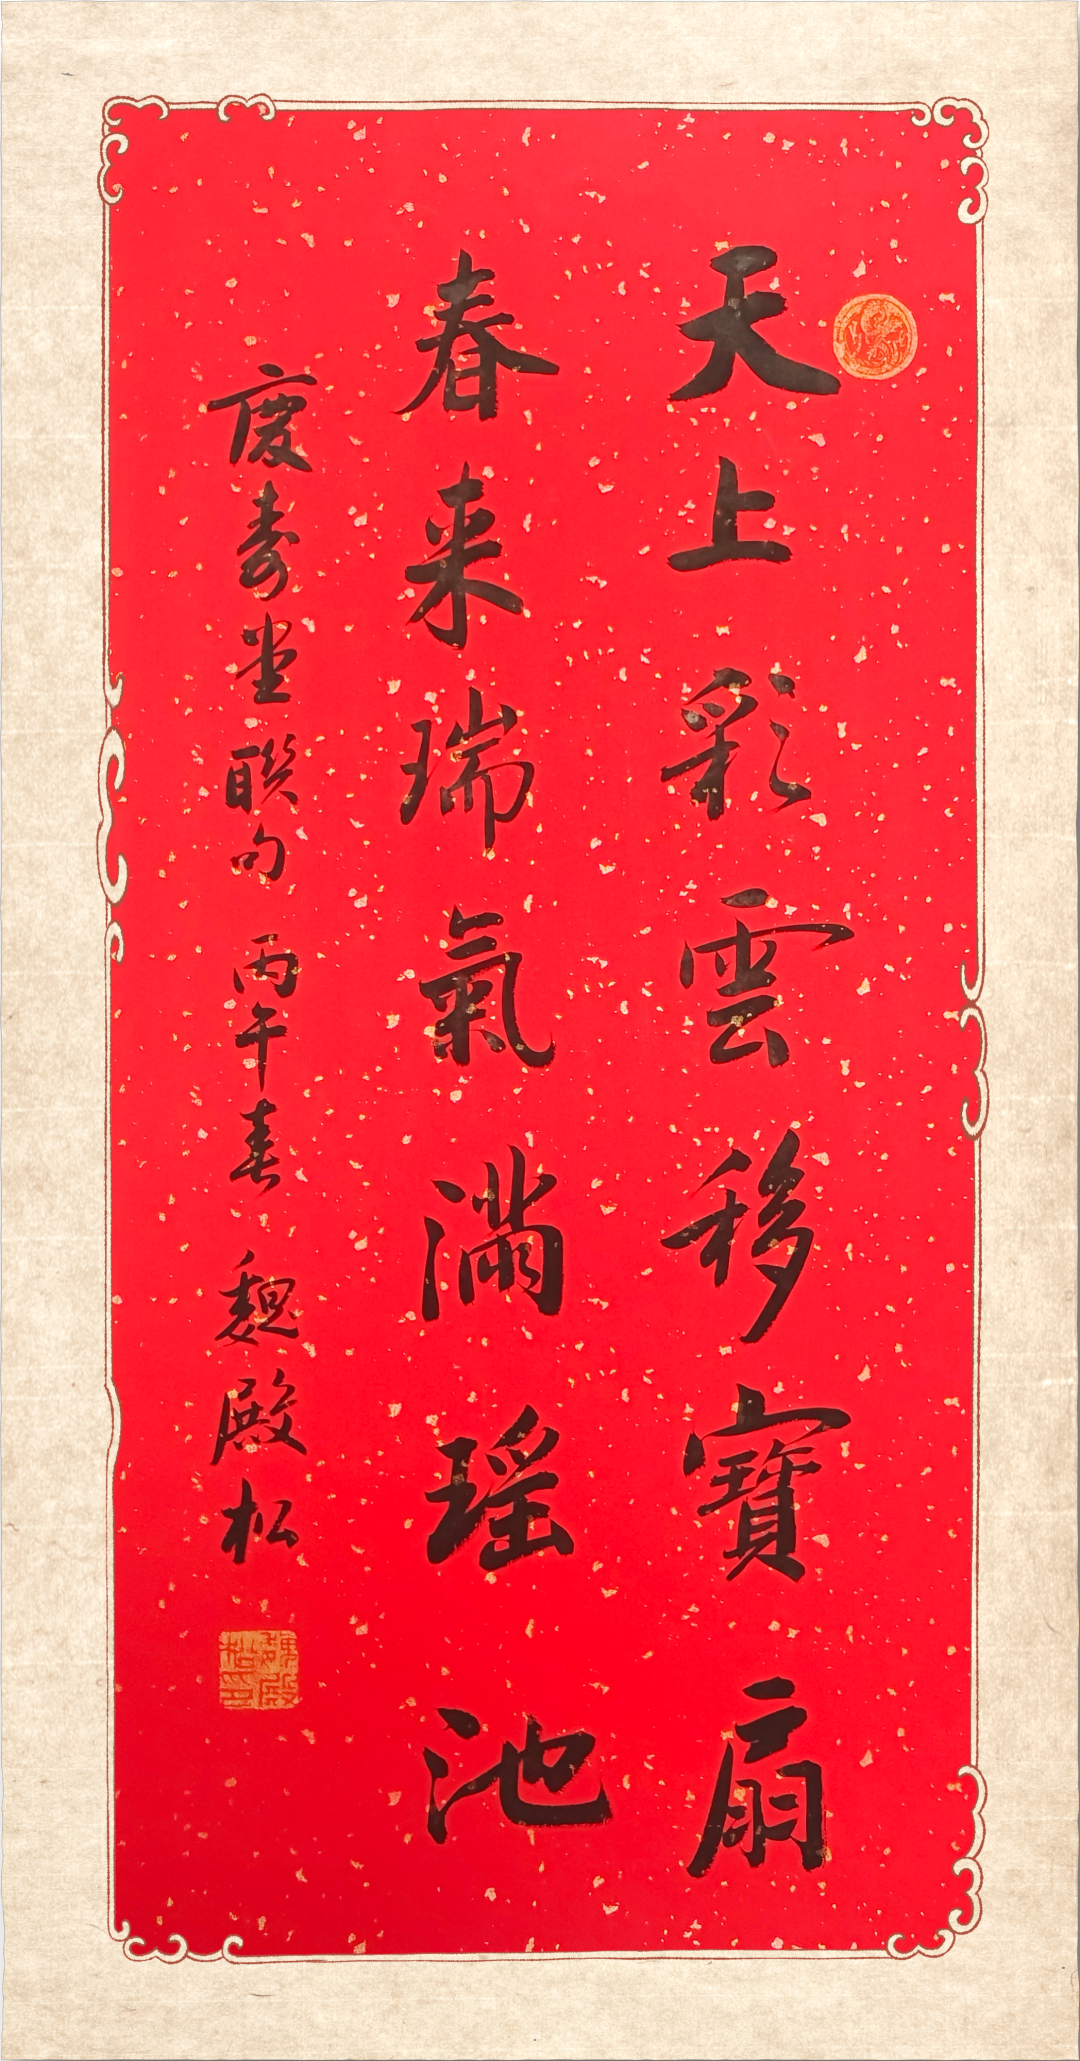 天上彩雲移寶扇
春来瑞氣滿瑶池
慶壽堂聯句 丙午春 魏殿松
魏殿松印